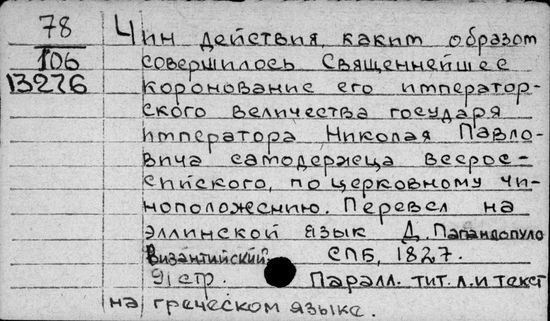 78
106
13276
Чин действия, каким образом
совершилось Священнейшее
коронование его император-
ского величества государя
императора Николая Павло-
вича самодержца всерос-
сийского, по церковному чи-
ноположению. Перевел на
эллинской язык Д. Папандопуло
Византийский. СПБ, 1827.
91 стр. Паралл. тит. л. и текст
на греческом языке.